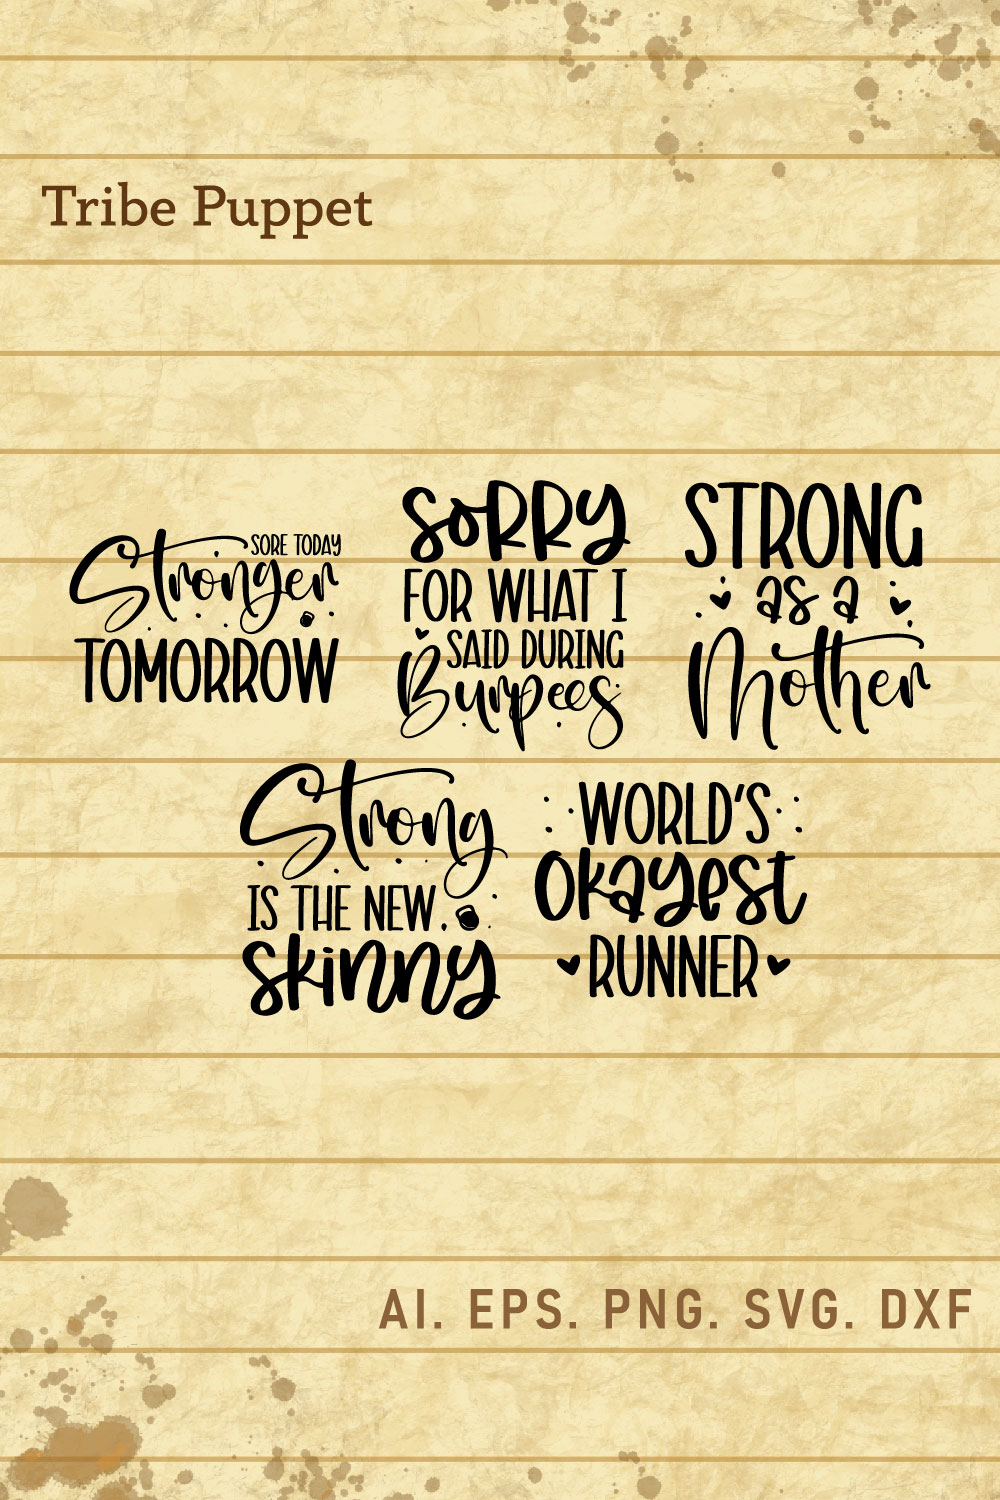 Tribe Puppet
SORE TODAY
Stronger
TOMORROW
SORRY
FOR WHAT I
SAID DURING
Burpees
STRONG
as a
Mother
Strong
IS THE NEW
skinny
WORLD'S
okayest
RUNNER
AI. EPS. PNG. SVG. DXF